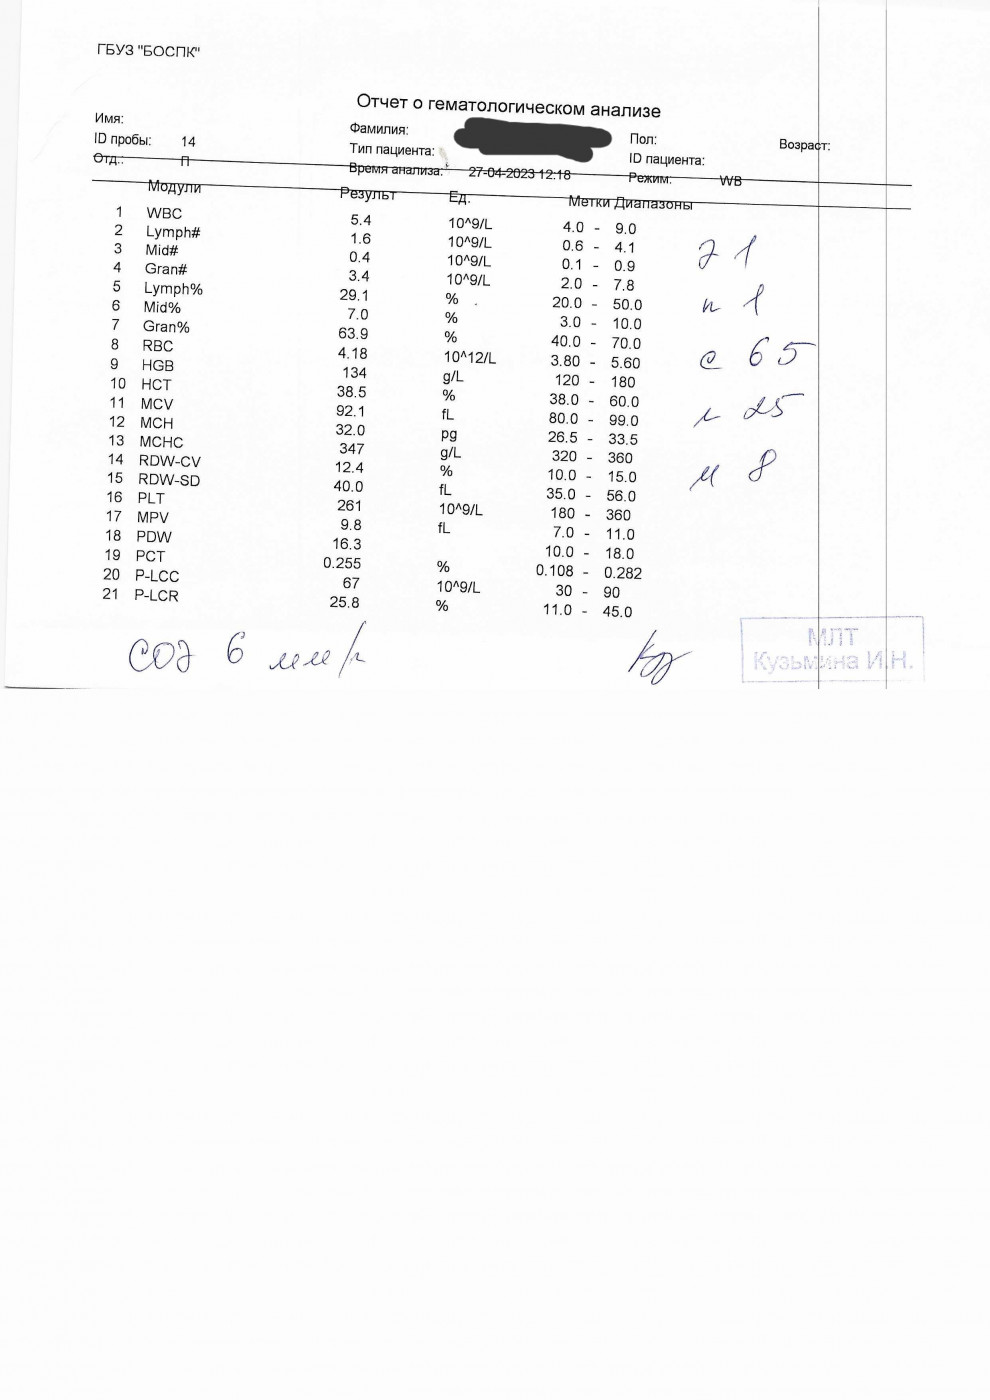 ГБУЗ "БОСПК"
Отчет о гематологическом анализе
Имя: Фамилия: Пол: Возраст:
ID пробы: 14 Тип пациента: ID пациента:
Отд.: П Время анализа: 27-04-2023 12:18 Режим: WB
Модули Результ Ед. Метки Диапазоны
1 WBC 5.4 10^9/L 4.0 - 9.0
2 Lymph# 1.6 10^9/L 0.6 - 4.1
3 Mid# 0.4 10^9/L 0.1 - 0.9
4 Gran# 3.4 10^9/L 2.0 - 7.8
5 Lymph% 29.1 % 20.0 - 50.0
6 Mid% 7.0 % 3.0 - 10.0
7 Gran% 63.9 % 40.0 - 70.0
8 RBC 4.18 10^12/L 3.80 - 5.60
9 HGB 134 g/L 120 - 180
10 HCT 38.5 % 38.0 - 60.0
11 MCV 92.1 fL 80.0 - 99.0
12 MCH 32.0 pg 26.5 - 33.5
13 MCHC 347 g/L 320 - 360
14 RDW-CV 12.4 % 10.0 - 15.0
15 RDW-SD 40.0 fL 35.0 - 56.0
16 PLT 261 10^9/L 180 - 360
17 MPV 9.8 fL 7.0 - 11.0
18 PDW 16.3 10.0 - 18.0
19 PCT 0.255 % 0.108 - 0.282
20 P-LCC 67 10^9/L 30 - 90
21 P-LCR 25.8 % 11.0 - 45.0
э 1
п 1
с 65
л 25
м 8
СОЭ 6 мм/ч
МЛТ
Кузьмина И.Н.